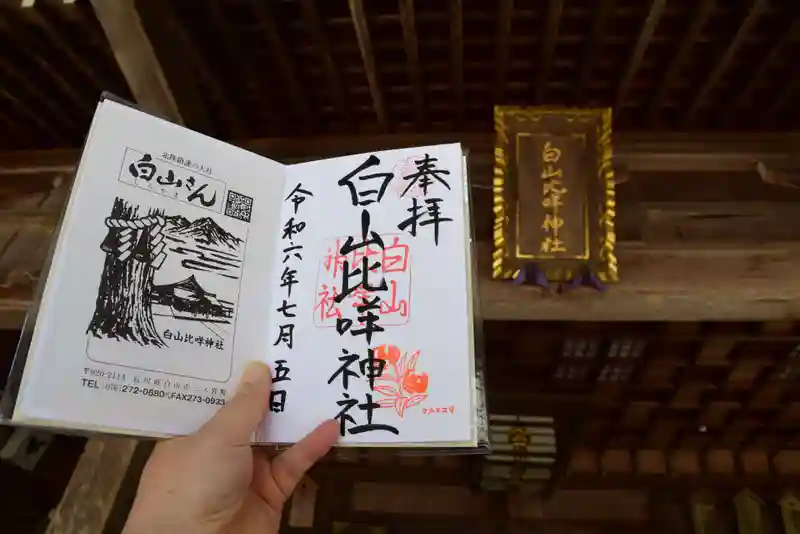 北陸鎮護の大社
白山さん
しらやま
白山比咩神社
〒920-2114 石川県白山市三ノ宮町
TEL.(076)272-0680㈹FAX273-0933
奉拝
白山比咩神社
令和六年七月五日
白山
比咩
神社
クロユリ
白山比咩神社